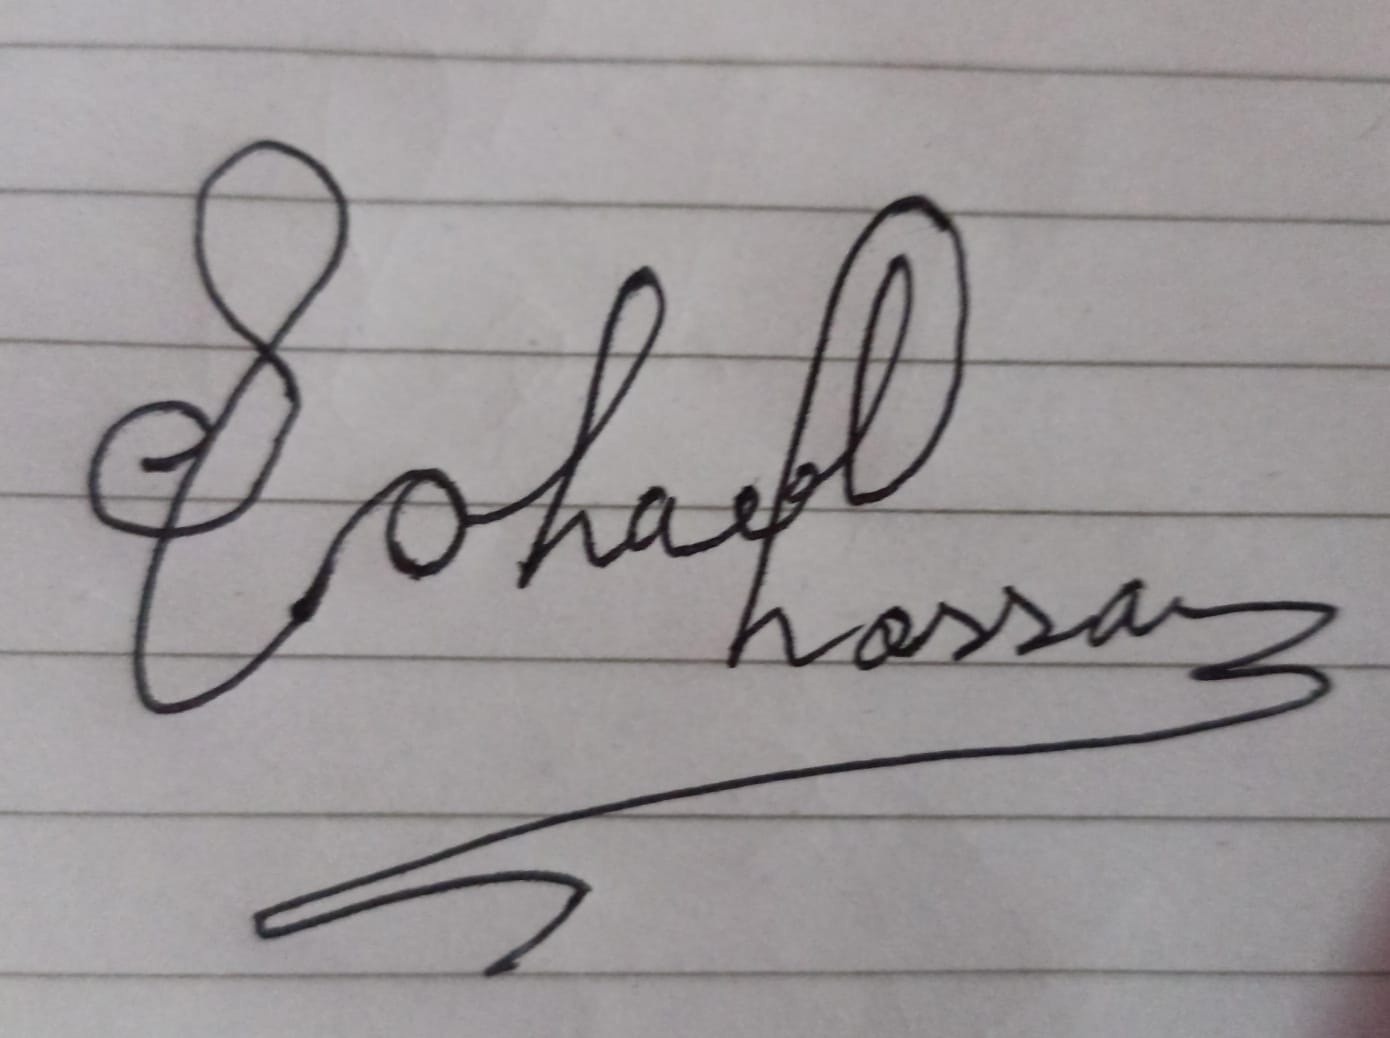 Sohael
hossan